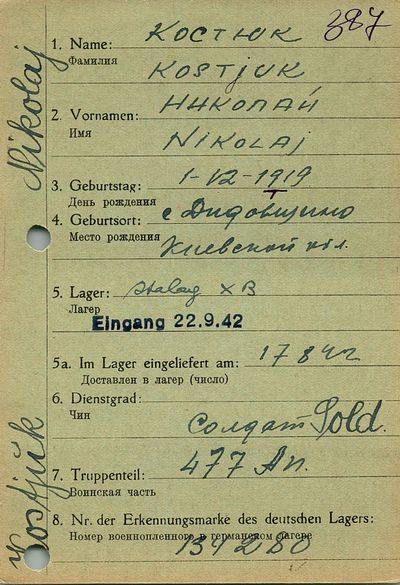 387
1. Name: Костюк
Фамилия Kostjuk
2. Vornamen: Николай
Имя Nikolaj
3. Geburtstag: 1-12-1919
День рождения
4. Geburtsort: с Дидовщино
Место рождения Киевской обл.
5. Lager: Stalag X B
Лагер
Eingang 22.9.42
5a. Im Lager eingeliefert am: 17 8 42
Доставлен в лагер (число)
6. Dienstgrad:
Чин
Солдат Sold.
7. Truppenteil: 477 Ап.
Воинская часть
8. Nr. der Erkennungsmarke des deutschen Lagers:
Номер военнопленного в германском лагере
134280
Nikolaj
Kostjuk